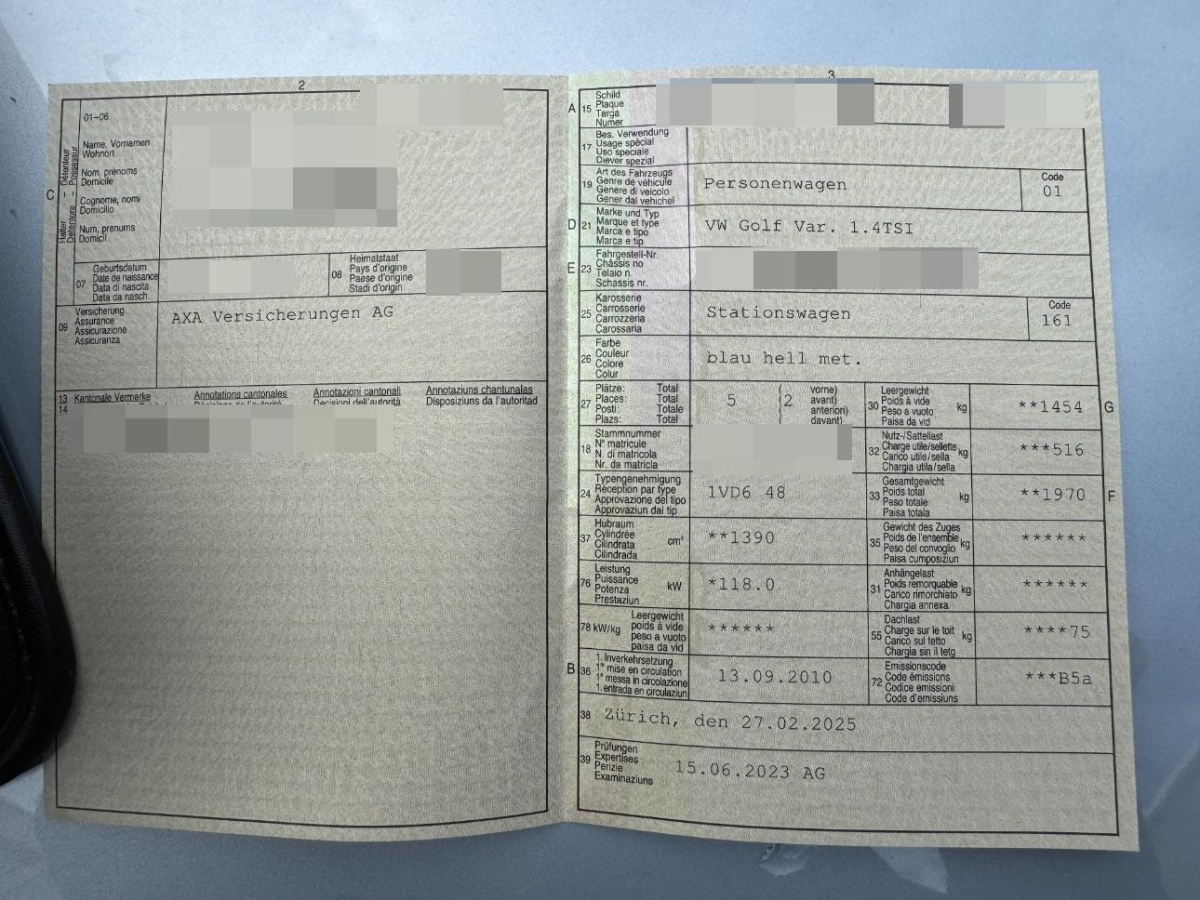 2
01–06
Name, Vornamen
Wohnort
Nom, prenoms
Domicile
Cognome, nomi
Domicilio
Num, prenums
Domicil
C
Halter – Détenteur
Detentore – Possessur
07
Geburtsdatum
Date de naissance
Data di nascita
Data da nasch.
08
Heimatstaat
Pays d'origine
Paese d'origine
Stadi d'origin
09
Versicherung
Assurance
Assicurazione
Assicuranza
AXA Versicherungen AG
13 Kantonale Vermerke Annotations cantonales Annotazioni cantonali Annotaziuns chantunalas
14 Décisions de l'autorité Decisioni dell'autorità Disposiziuns da l'autoritad
3
A 15
Schild
Plaque
Targa
Numer
17
Bes. Verwendung
Usage spécial
Uso speciale
Diever spezial
19
Art des Fahrzeugs
Genre de véhicule
Genere di veicolo
Gener dal vehichel
Personenwagen
Code
01
D 21
Marke und Typ
Marque et type
Marca e tipo
Marca e tip
VW Golf Var. 1.4TSI
E 23
Fahrgestell-Nr.
Châssis no
Telaio n.
Schassis nr.
25
Karosserie
Carrosserie
Carrozzeria
Carossaria
Stationswagen
Code
161
26
Farbe
Couleur
Colore
Colur
blau hell met.
27
Plätze: Total
Places: Total
Posti: Totale
Plazs: Total
5 ( 2 vorne)
avant)
anteriori)
davant)
30
Leergewicht
Poids à vide
Peso a vuoto
Paisa da vid
kg
**1454
G
18
Stammnummer
N° matricule
N. di matricola
Nr. da matricla
32
Nutz-/Sattellast
Charge utile/sellette
Carico utile/sella
Chargia utila/sella
kg
***516
24
Typengenehmigung
Réception par type
Approvazione del tipo
Approvaziun dal tip
1VD6 48
33
Gesamtgewicht
Poids total
Peso totale
Paisa totala
kg
**1970
F
37
Hubraum
Cylindrée
Cilindrata
Cilindrada
cm³
**1390
35
Gewicht des Zuges
Poids de l'ensemble
Peso del convoglio
Paisa cumposiziun
kg
******
76
Leistung
Puissance
Potenza
Prestaziun
kW
*118.0
31
Anhängelast
Poids remorquable
Carico rimorchiato
Chargia annexa
kg
******
78 kW/kg
Leergewicht
poids à vide
peso a vuoto
paisa da vid
******
55
Dachlast
Charge sur le toit
Carico sul tetto
Chargia sin il tetg
kg
****75
B 36
1. Inverkehrsetzung
1re mise en circulation
1a messa in circolazione
1. entrada en circulaziun
13.09.2010
72
Emissionscode
Code émissions
Codice emissioni
Code d'emissiuns
***B5a
38 Zürich, den 27.02.2025
39
Prüfungen
Expertises
Perizie
Examinaziuns
15.06.2023 AG